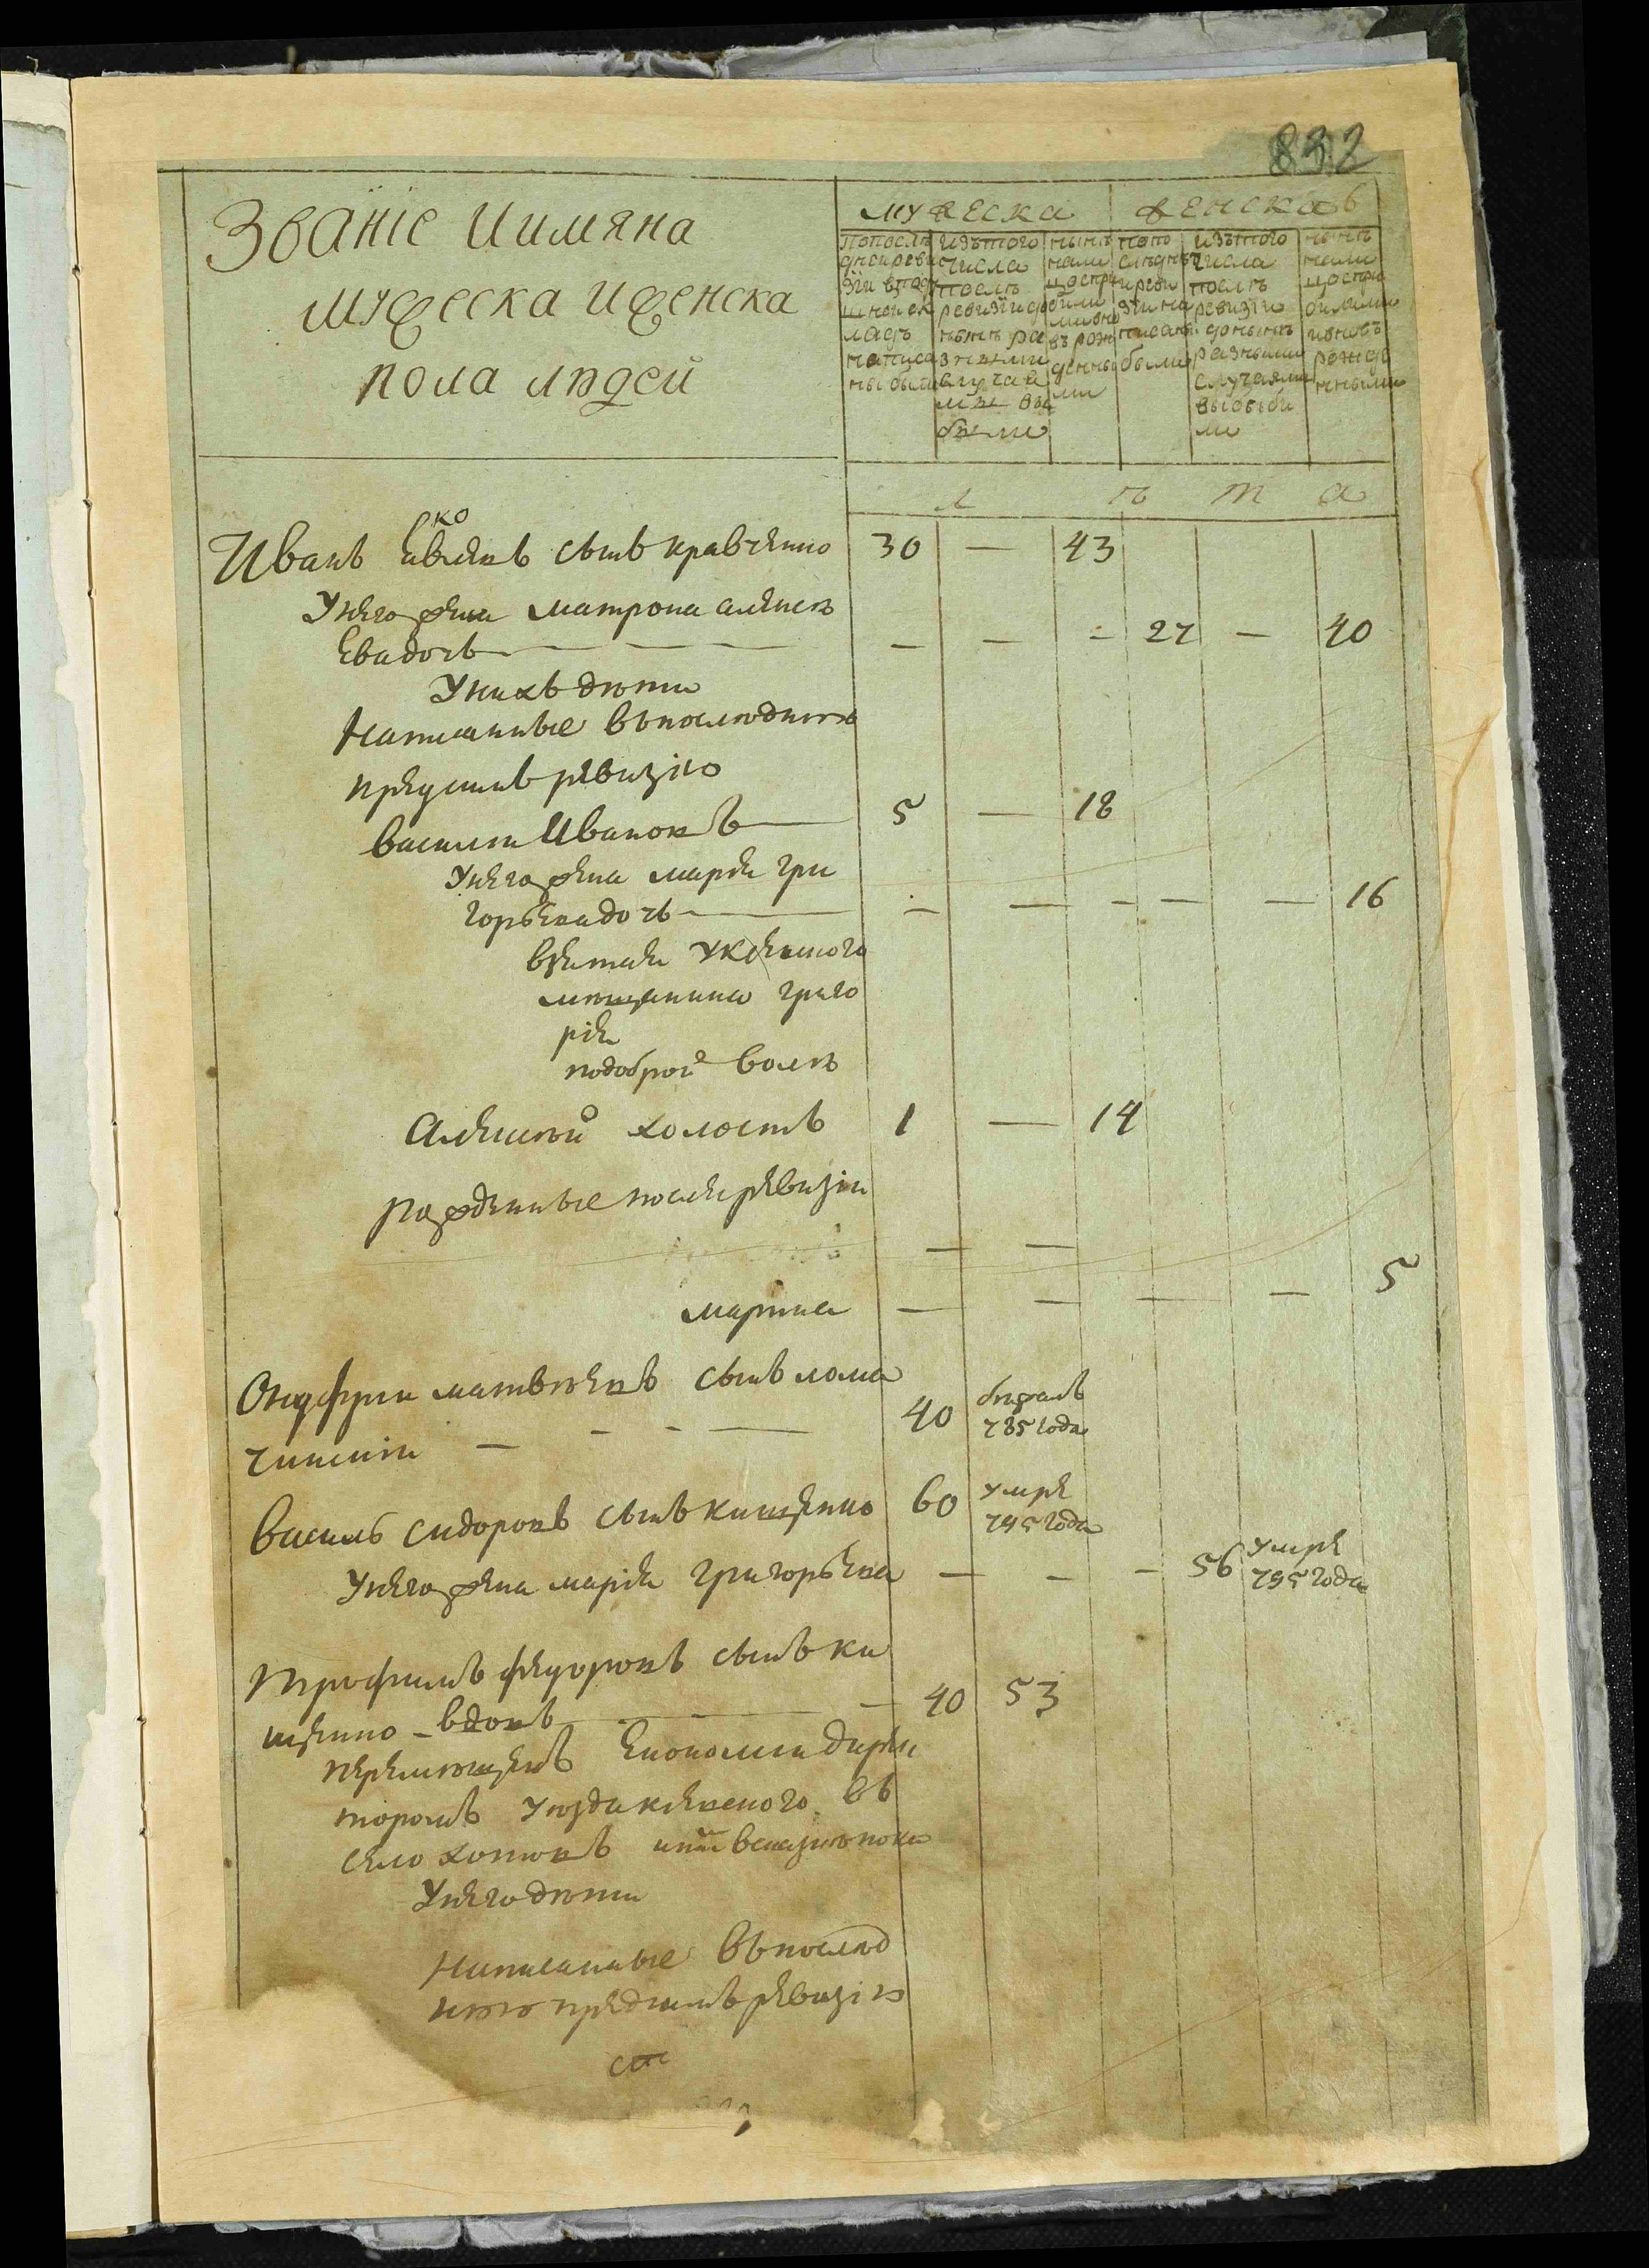 832
Званїе Иимяна
мужеска иженска
пола людей
мужеска
женска
попослѣ
дней реви
зїи вподу
шной ок
ладъ
написа
ны были
изътого
числа
послѣ
ревизїи до
нынѣ ра
зными
случая
ми вы
были
нынѣ
нали
цо стри
были
мионо
въ рож
денны
ми
попо
слѣдне
и реви
зїи на
писаны
были
изътого
числа
послѣ
ревизїи
донынѣ
разными
случаями
выобыби
ли
нынѣ
нали
цо стри
былыми
ионовъ
рожде
нными
л ѣ т а
Иванъ яковлевъ сынъ кравченко 30 — 43
Унего жена матрона алексѣ
евадочь — — — — — - 27 — 40
Унихъ дѣти
Написанные впослюднюю
предсимъ ревизію
василїи Ивановъ — 5 — 18
Унего жена марїя гри
горьевадочь — — — — — — 16
взятая Укіевского
мѣщанина григо
рія
подоброй волѣ
Алексѣй холостъ 1 — 14
Рожденные после ревизїи
— —
марина — — — — 5
Онуфрїи матвѣевъ сынъ лома
чинскїи — - - — 40 бѣжалъ
785 года
Василь сидоровъ сынъ кищенко 60 умре
795 года
Унего жена марїя григорьева — — - 56 умре
795 года
Трофимъ федоровъ сынъ ки
щенко - вдовъ — — — 40 53
перемѣщенъ Економїи дирек
торомъ Уѣзда кіевского въ
село хотовъ
Унего дѣти
Написанные впослѣд
нюю предсимъ ревизїю